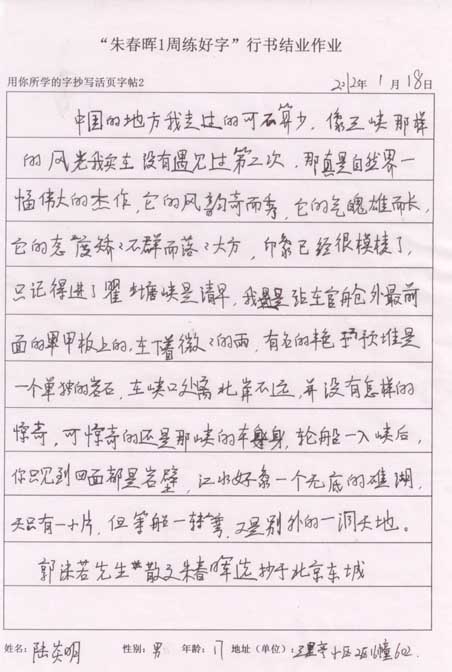 “朱春晖1周练好字”行书结业作业
用你所学的字抄写活页字帖2 2012年 1 月 18日
中国的地方我走过的可不算少，像三峡那样
的风光我实在没有遇见过第二次，那真是自然界一
幅伟大的杰作，它的风韵奇而秀，它的气魄雄而长，
它的态度矫矫不群而落落大方，印象已经很模棱了，
只记得进了瞿塘峡是清早，我是站在官舱外最前
面的甲板上的，在下着微微的雨，有名的滟滪堆是
一个单独的岩石，在峡口处离北岸不远，并没有怎样的
惊奇，可惊奇的还是那峡的本身，轮船一入峡后，
你只见到四面都是岩壁，江水好象一个无底的礁湖，
天只有一小片，但等船一转弯，又是别外的一洞天地。
郭沫若先生散文朱春晖选抄于北京东城
姓名：陆英明 性别：男 年龄：17 地址（单位）：